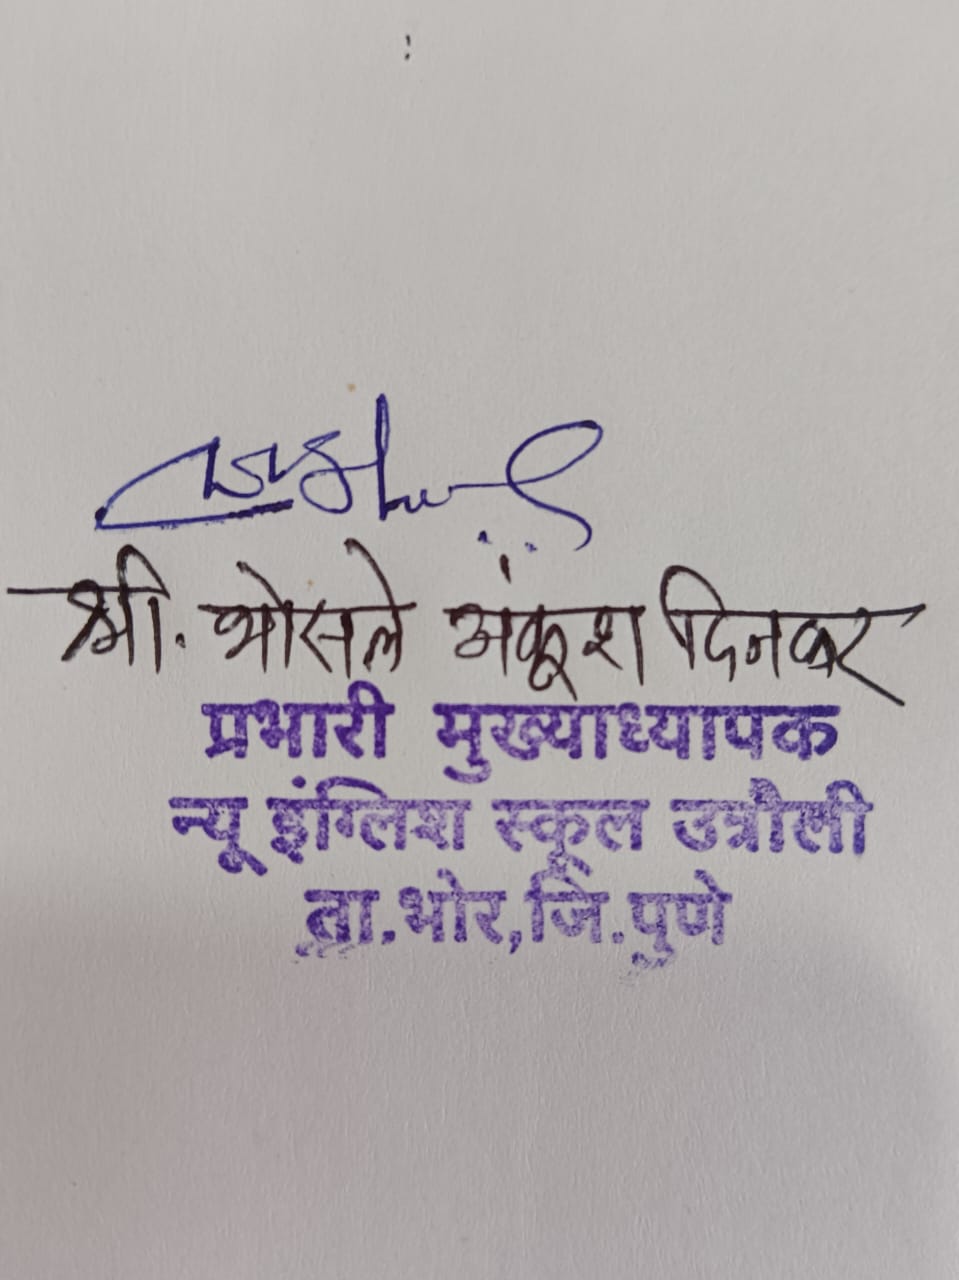 श्री. भोसले अंकूश दिनकर
प्रभारी मुख्याध्यापक
न्यू इंग्लिश स्कूल उत्रौली
ता.भोर,जि.पुणे